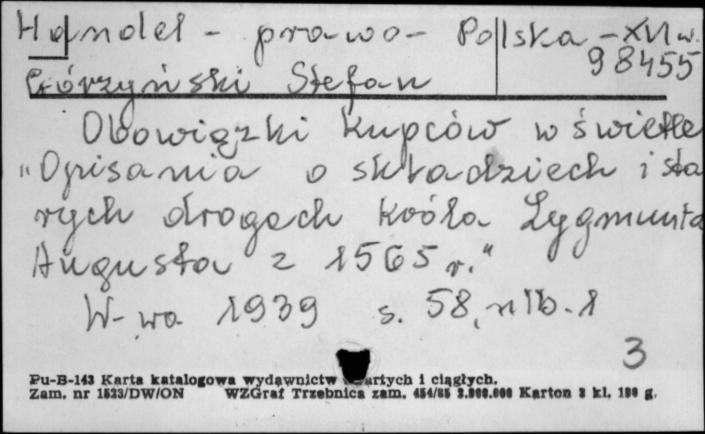 Handel - prawo - Polska - XVI w.
98455
Górzyński Stefan
Obowiązki kupców w świetle
"Opisania o składziech i sta
rych drogach króla Zygmunta
Augusta z 1565 r."
W-wa 1939 s. 58, nlb. 1
3
Pu-B-143 Karta katalogowa wydawnictw zwartych i ciągłych.
Zam. nr 1523/DW/ON WZGraf Trzebnica zam. 454/85 3.900.000 Karton 3 kl. 190 g.